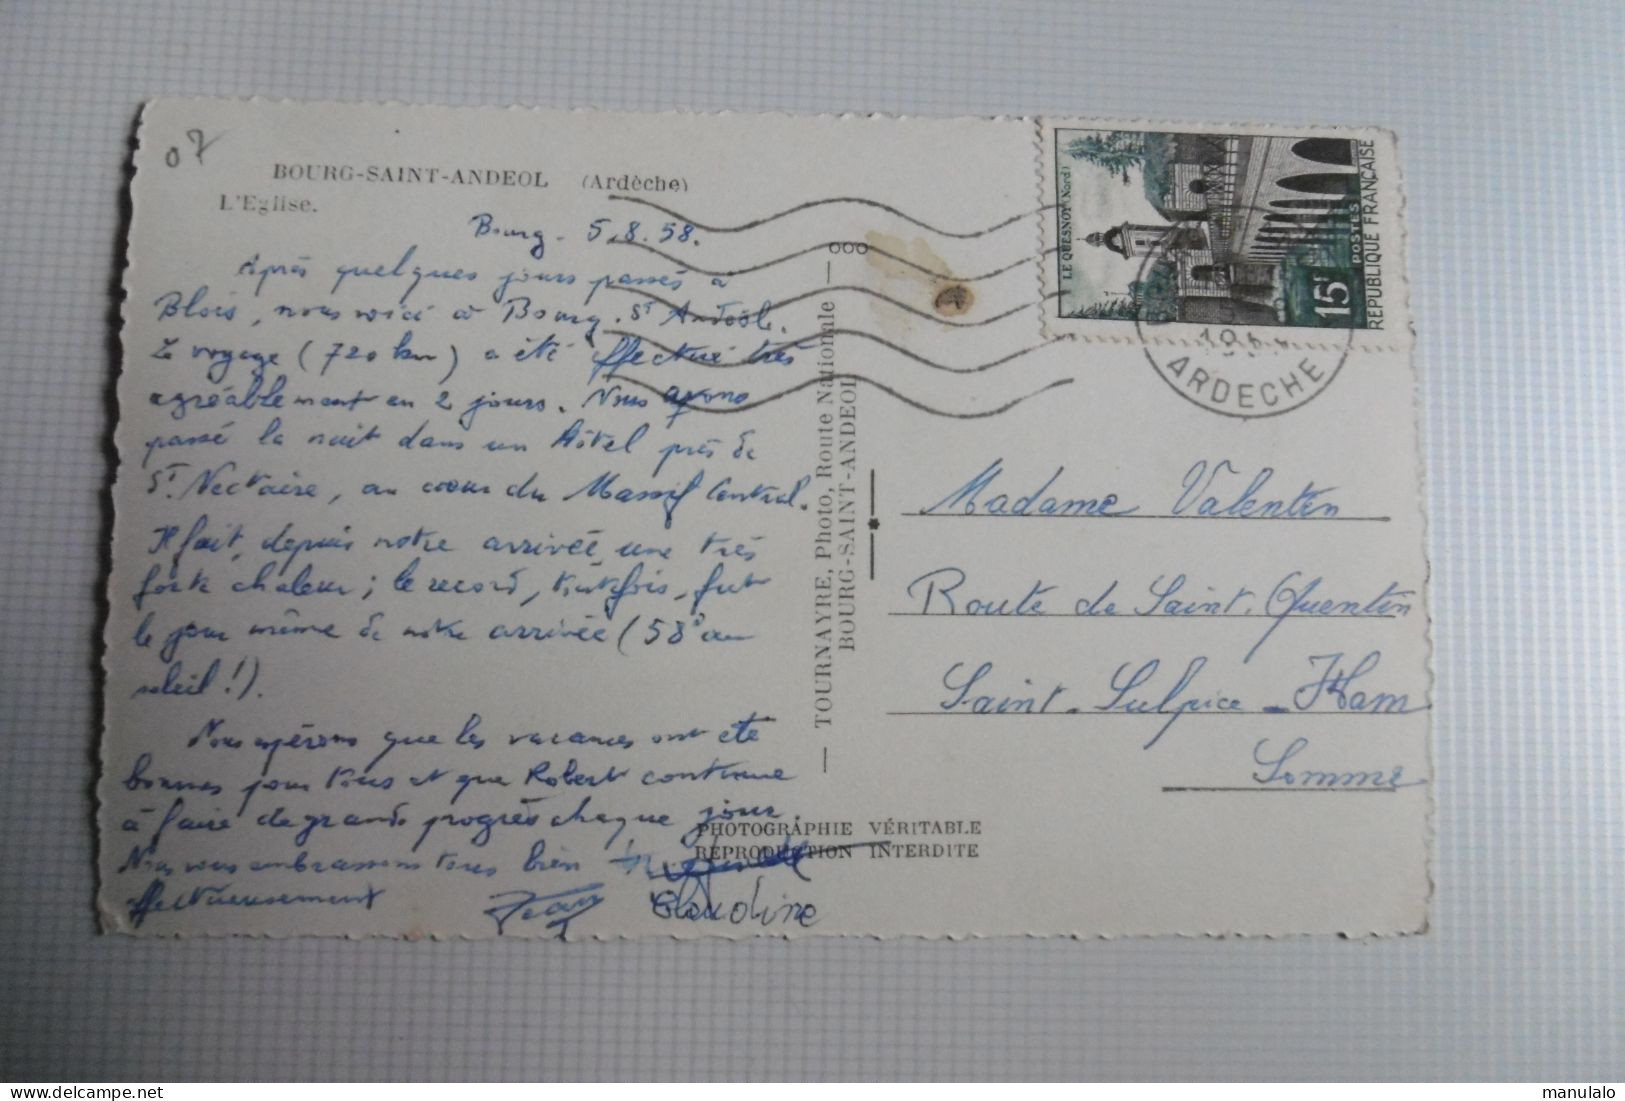 07
BOURG-SAINT-ANDEOL (Ardèche)
L'Eglise.
Bourg - 5.8.58.
Après quelques jours passés à
Blois, nous voici à Bourg. St Andéol.
Le voyage (720 km) a été effectué très
agréablement en 2 jours. Nous avons
passé la nuit dans un hôtel près de
St. Nectaire, au cœur du Massif Central.
Il fait, depuis notre arrivée, une très
forte chaleur ; le record, toutefois, fut
le jour même de notre arrivée (58° au
soleil !).
Nous espérons que les vacances ont été
bonnes pour tous et que Robert continue
à faire de grands progrès chaque jour.
Nous vous embrassons tous bien
affectueusement Jean Claudine
TOURNAYRE, Photo, Route Nationale
BOURG-SAINT-ANDEOL
PHOTOGRAPHIE VÉRITABLE
REPRODUCTION INTERDITE
LE QUESNOY (Nord)
15F
POSTES
REPUBLIQUE FRANÇAISE
ARDECHE
Madame Valentin
Route de Saint. Quentin
Saint. Sulpice - Ham
Somme
manulalo